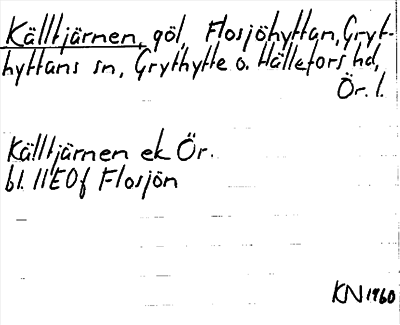 Källtjärnen, göl, Flosjöhyttan, Gryt-
hyttans sn, Grythytte o. Hällefors hd,
Ör. l.
Källtjärnen ek Ör.
bl. 11E0f Flosjön
KN 1960